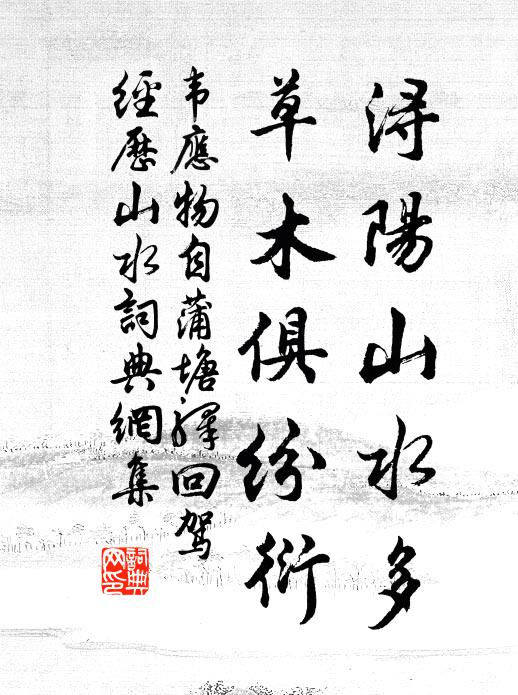 浔陽山水多
草木俱纷衍
韦應物自蒲塘驿回駕
經歷山水詞典網集
詞典
网印